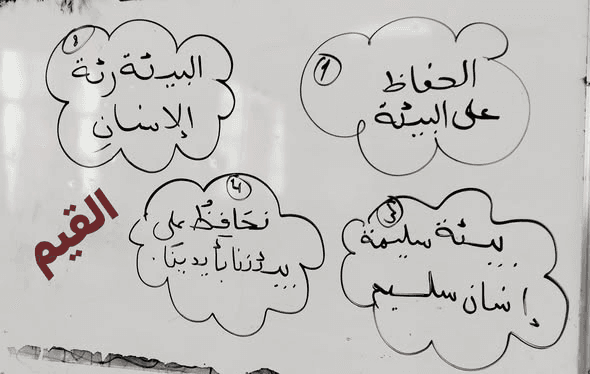 1
الحفاظ
على البيئة
البيئة رئة
الإنسانِ
3
بيئة سليمة
إنسان سليم
نحَافِظُ على
بيئتنا بأيدينَا
القيم